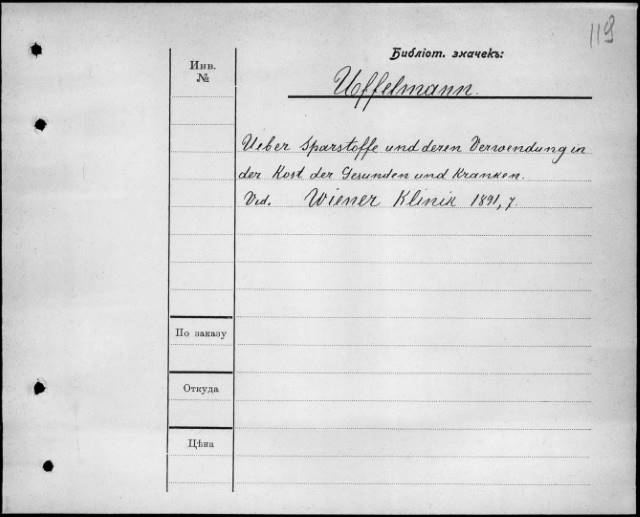 119
Библіот. значекъ:
Инв.
№
Uffelmann.
Ueber Sparstoffe und deren Verwendung in
der Kost der Gesunden und Kranken.
Vid. Wiener Klinik 1891, 7
По заказу
Откуда
Цѣна